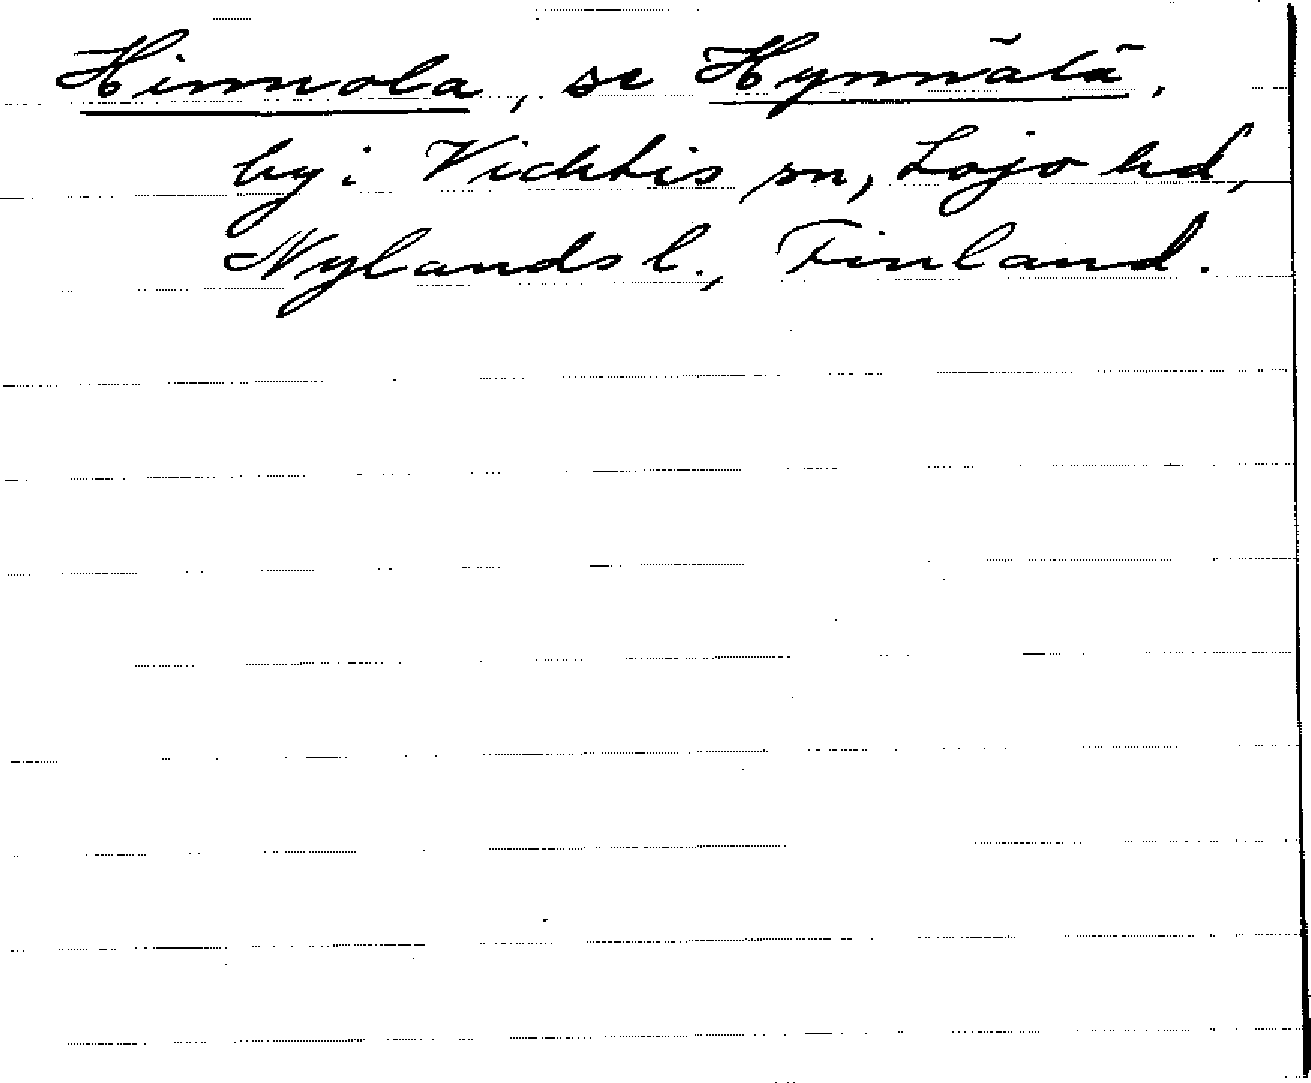 Hinnola, se Hynnälä,
by i Vichtis sn, Lojo hd,
Nylands l., Finland.